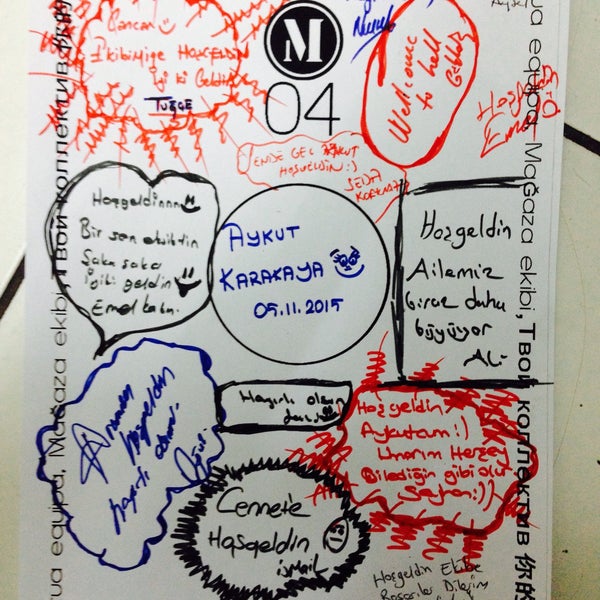 Cancan
Ekibimize HOŞGELDİN
İyi ki Geldin
TUĞÇE
M
04
Welcome
to hell
ENDE GEÇ
HOŞGELDİN :)
SEDA
KORKMAZ
Hoşgeldinnn
Bir sen eksiktin
Şaka şaka
iyiki geldin
Emel
AYKUT
KARAKAYA
05.11.2015
Hoşgeldin
Ailemiz
biraz daha
büyüyor
Ali
Aramıza
hoşgeldin
hayırlı olsun
Hayırlı olsun
Hoşgeldin
Aykutcum :)
Umarım Herşey
Bilediğin gibi olur
Seyhan :))
Cennete
Hoşgeldin
ismail
Hoşgeldin Ekibe
Başarılar Dilerim
ua equipa, Mağaza ekibi, Твой коллектив 你的
ua equipa, Mağaza ekibi, Твой коллектив 你的